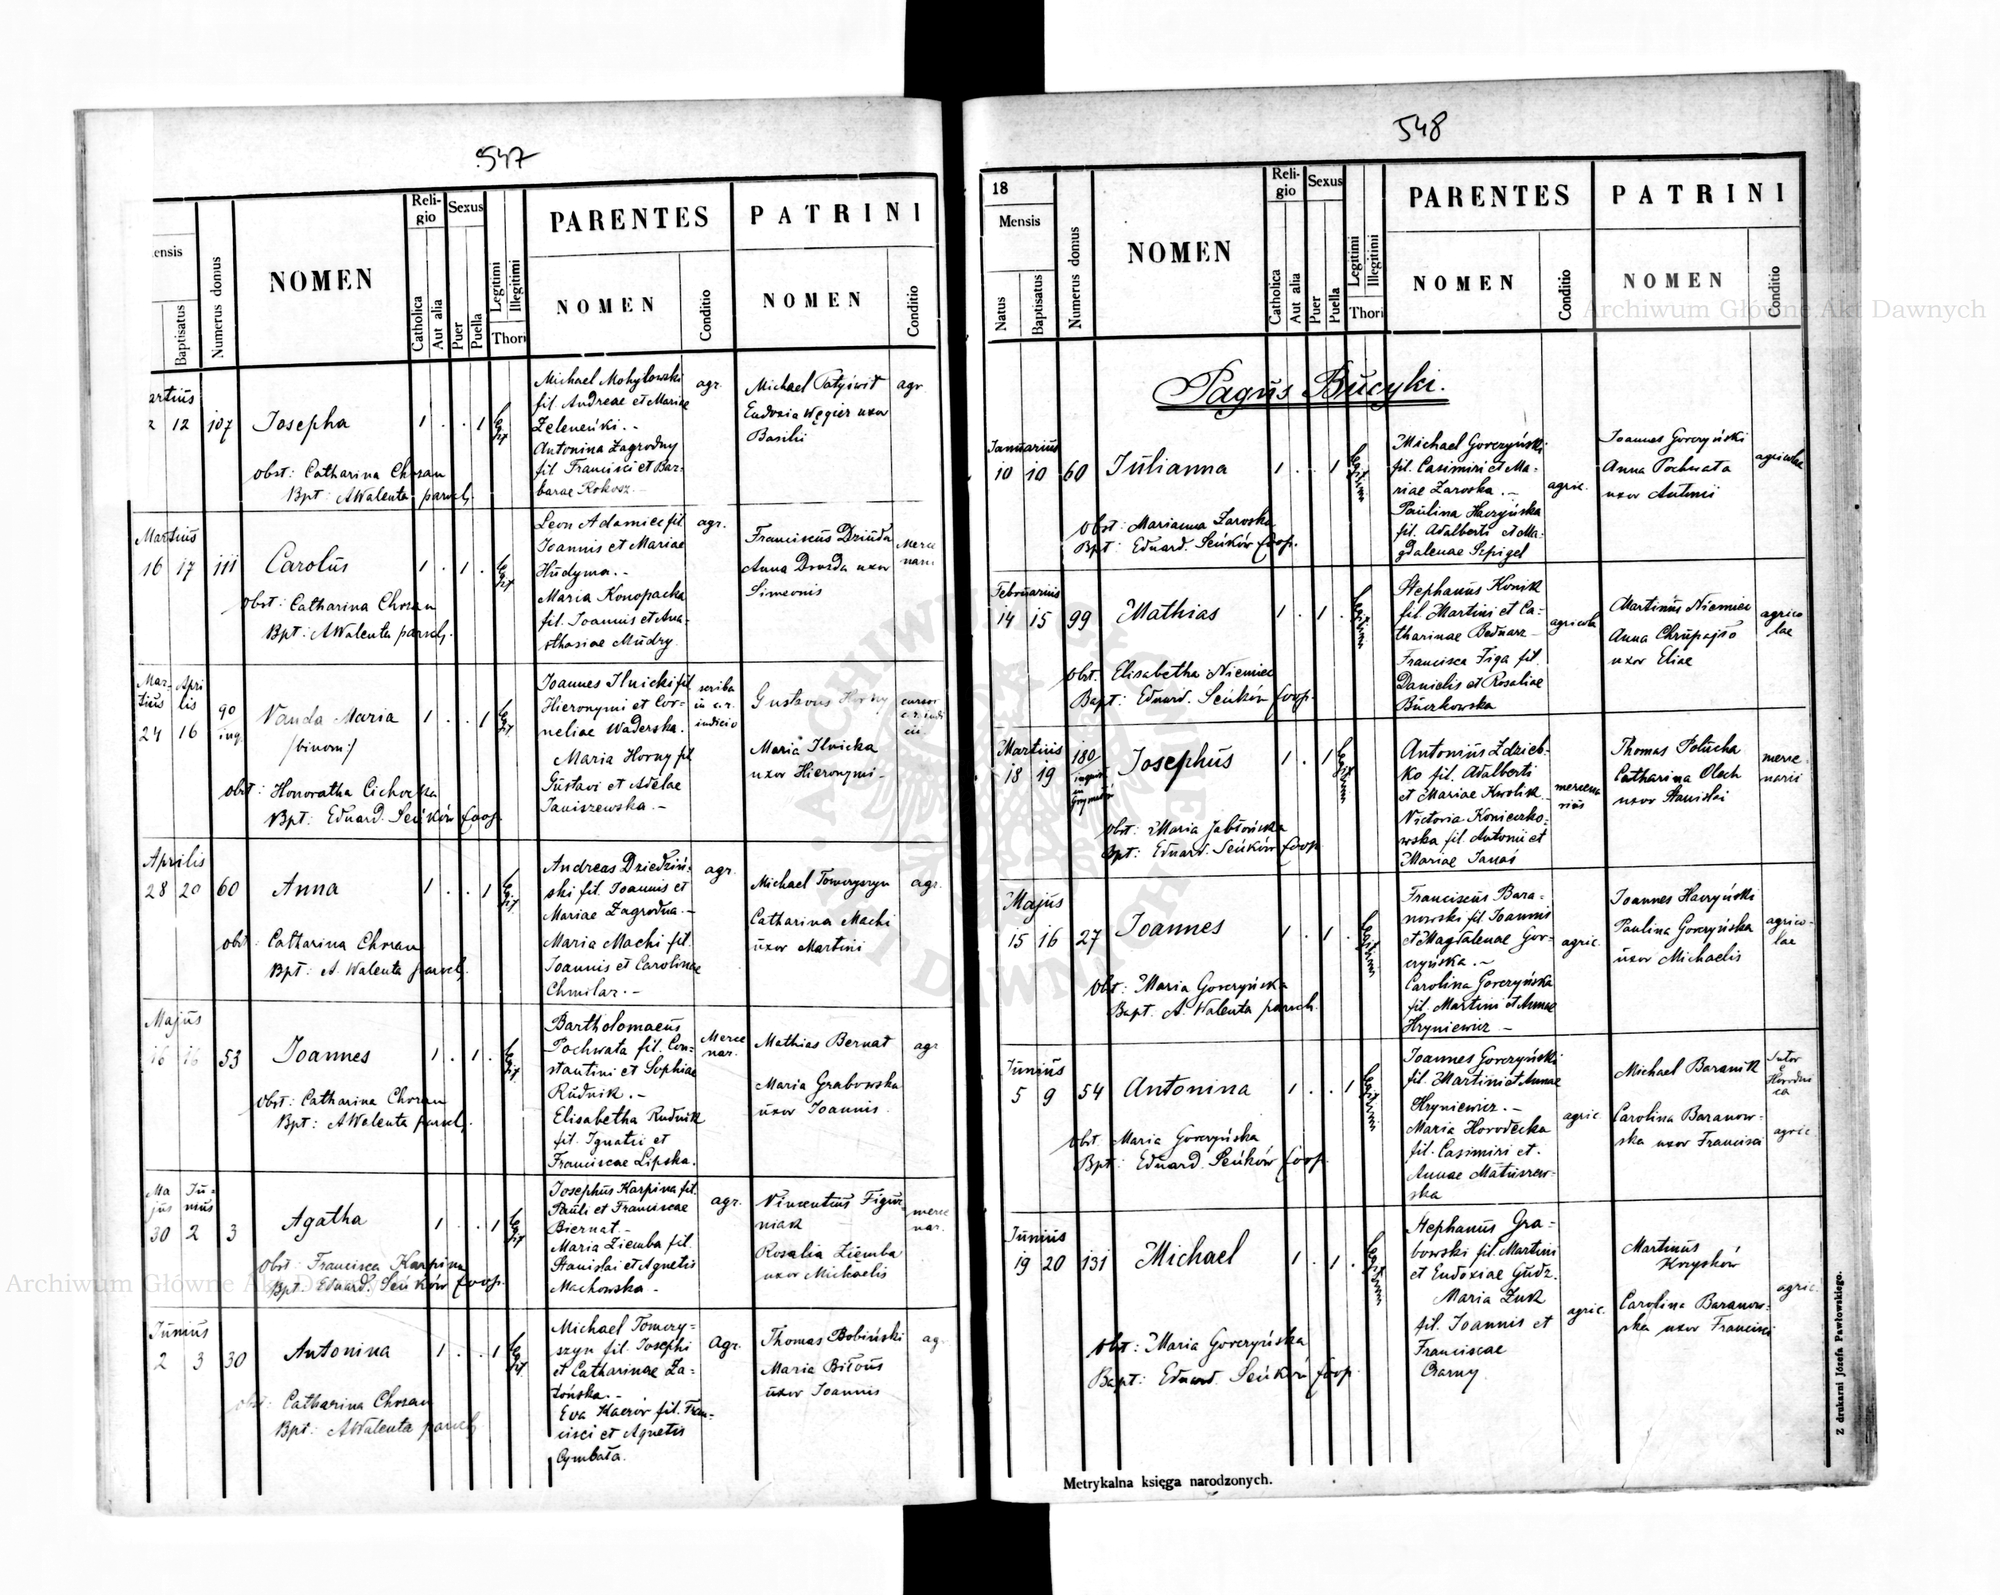 547
ensis
Baptisatus
Numerus domus
NOMEN
Reli-
gio
Catholica
Aut alia
Sexus
Puer
Puella
Legitimi
Illegitimi
Thori
PARENTES
NOMEN
Conditio
PATRINI
NOMEN
Conditio
artius
2 12 107 Josepha 1 . . 1
obst: Catharina Chosan
Bpt: A Walenta paroch.
Michael Mohylowski
fil. Andreae et Mariae
Zeleneński. -
Antonina Zagrodny
fil. Francisci et Bar-
barae Rokosz. -
agr.
Michael
Eudoxia Węgier uxor
Basilii
agr.
Martius
16 17 111 Carolus 1 . 1 .
obst: Catharina Chosan
Bpt: A Walenta paroch.
Leon Adamice fil
Joannis et Mariae
Hudyma. -
Maria Konopacka
fil. Joannis et Ana-
sthasiae Mudry.
agr.
Franciscus Dziuda
Anna Drozda uxor
Simeonis
Merce
nar.
Mar-
tius
Apri
lis
24 16 90
ing.
Vanda Maria 1 . . 1
/binom:/
obst: Honoratha Cichocka
Bpt: Eduard. Seńków Coop.
Joannes Ilnicki fil
Hieronymi et Cor-
neliae Waderska.
Maria Horny fil
Gustavi et Adelae
Janiszewska. -
scriba
in c.r.
iudicio
Gustavus Horny
Maria Ilnicka
uxor Hieronymi -
cursor
c.r. iudi
cii.
Aprilis
28 20 60 Anna 1 . . 1
obst: Catharina Chosan
Bpt: A. Walenta paroch.
Andreas Dziedziń-
ski fil. Joannis et
Mariae Zagrodna. -
Maria Machi fil.
Joannis et Carolinae
Chmilar. -
agr.
Michael Tomeryszyn
Catharina Machi
uxor Martini
agr.
Majus
16 16 53 Joannes 1 . 1 .
obst: Catharina Chosan
Bpt: A Walenta paroch.
Bartholomaeus
Pochwata fil. Con-
stantini et Sophiae
Rudnik. -
Elisabetha Rudnik
fil. Ignatii et
Franciscae Lipska.
Merce
nar.
Mathias Bernat
Maria Grabowska
uxor Joannis.
agr
Ma
jus
Ju-
nius
30 2 3 Agatha 1 . . 1
obst: Francisca Karpina
Bpt: Eduard. Seńków Coop.
Josephus Karpina fil.
Pauli et Franciscae
Biernat. -
Maria Ziemba fil.
Stanislai et Agnetis
Machowska -
agr.
Vincentius Figur
niak
Rosalia Ziemba
uxor Michaelis
merce
nar.
Junius
2 3 30 Antonina 1 . . 1
obst: Catharina Chosan
Bpt: A Walenta paroch
Michael Tomery-
szyn fil. Josephi
et Catharinae Za-
łońska. -
Eva Kaczor fil. Fran-
cisci et Agnetis
Cymbała.
Agr.
Thomas Bobiński
Maria Biłous
uxor Joannis
ag.
548
18
Mensis
Natus
Baptisatus
Numerus domus
NOMEN
Reli-
gio
Catholica
Aut alia
Sexus
Puer
Puella
Legitimi
Illegitimi
Thori
PARENTES
NOMEN
Conditio
PATRINI
NOMEN
Conditio
Pagus Bucyki.
Januarius
10 10 60 Julianna 1 . . 1
obst: Marianna Zaroska
Bpt: Eduard. Seńków Coop.
Michael Gorczyński
fil. Casimiri et Ma-
riae Zaroska. -
Paulina Haczyńska
fil. Adalberti et Ma-
gdalenae Szpigel
agric.
Joannes Gorczyński
Anna Pochwata
uxor Antonii
agricolae
Februarius
14 15 99 Mathias 1 . 1 .
obst. Elisabetha Niemiec
Bapt: Eduard. Seńków Coop.
Stephanus Konik
fil. Martini et Ca-
tharinae Bednarz -
Francisca Figa fil.
Danielis et Rosaliae
Buczkowska
agricola
Martinus Niemiec
Anna Chrupajło
uxor Eliae
agrico
lae
Martius
18 19 180
Josephus 1 . 1
obst: Maria Jabłońska
Bpt: Eduard. Seńków Coop
Antonius Zdzieb-
ko fil. Adalberti
et Mariae Kwolik -
Victoria Konieczko-
wska fil. Antonii et
Mariae Janas
mercena
rius
Thomas Połucha
Catharina Olech
uxor Stanislai
merce-
narii
Majus
15 16 27 Joannes 1 . 1 .
Obst: Maria Gorczyńska
Bapt. A. Walenta paroch.
Franciscus Bara-
nowski fil. Joannis
et Magdalenae Gor-
czyńska. -
Carolina Gorczyńska
fil. Martini et Annae
Hryniewicz -
agric.
Joannes Haczyński
Paulina Gorczyńska
uxor Michaelis
agrico-
lae
Junius
5 9 54 Antonina 1 . . 1
obst. Maria Gorczyńska
Bpt: Eduard. Seńków Coop.
Joannes Gorczyński
fil. Martini et Annae
Hryniewicz. -
Maria Horodecka
fil. Casimiri et.
Annae Matuszew-
ska
agric.
Michael Baranik
Carolina Baranow-
ska uxor Francisci
Sutor
agric.
Junius
19 20 131 Michael 1 . 1 .
obst: Maria Gorczyńska
Bapt: Eduard. Seńków Coop.
Stephanus Gra-
bowski fil. Martini
et Eudoxiae Gudz.
Maria Zuk
fil. Joannis et
Franciscae
Czarny.
agric.
Martinus
Krzysków
Carolina Baranow-
ska uxor Francisci
agric.
Metrykalna księga narodzonych.
Z drukarni Józefa Pawłowskiego.
Archiwum Główne Akt Dawnych
Archiwum Główne Akt Dawnych